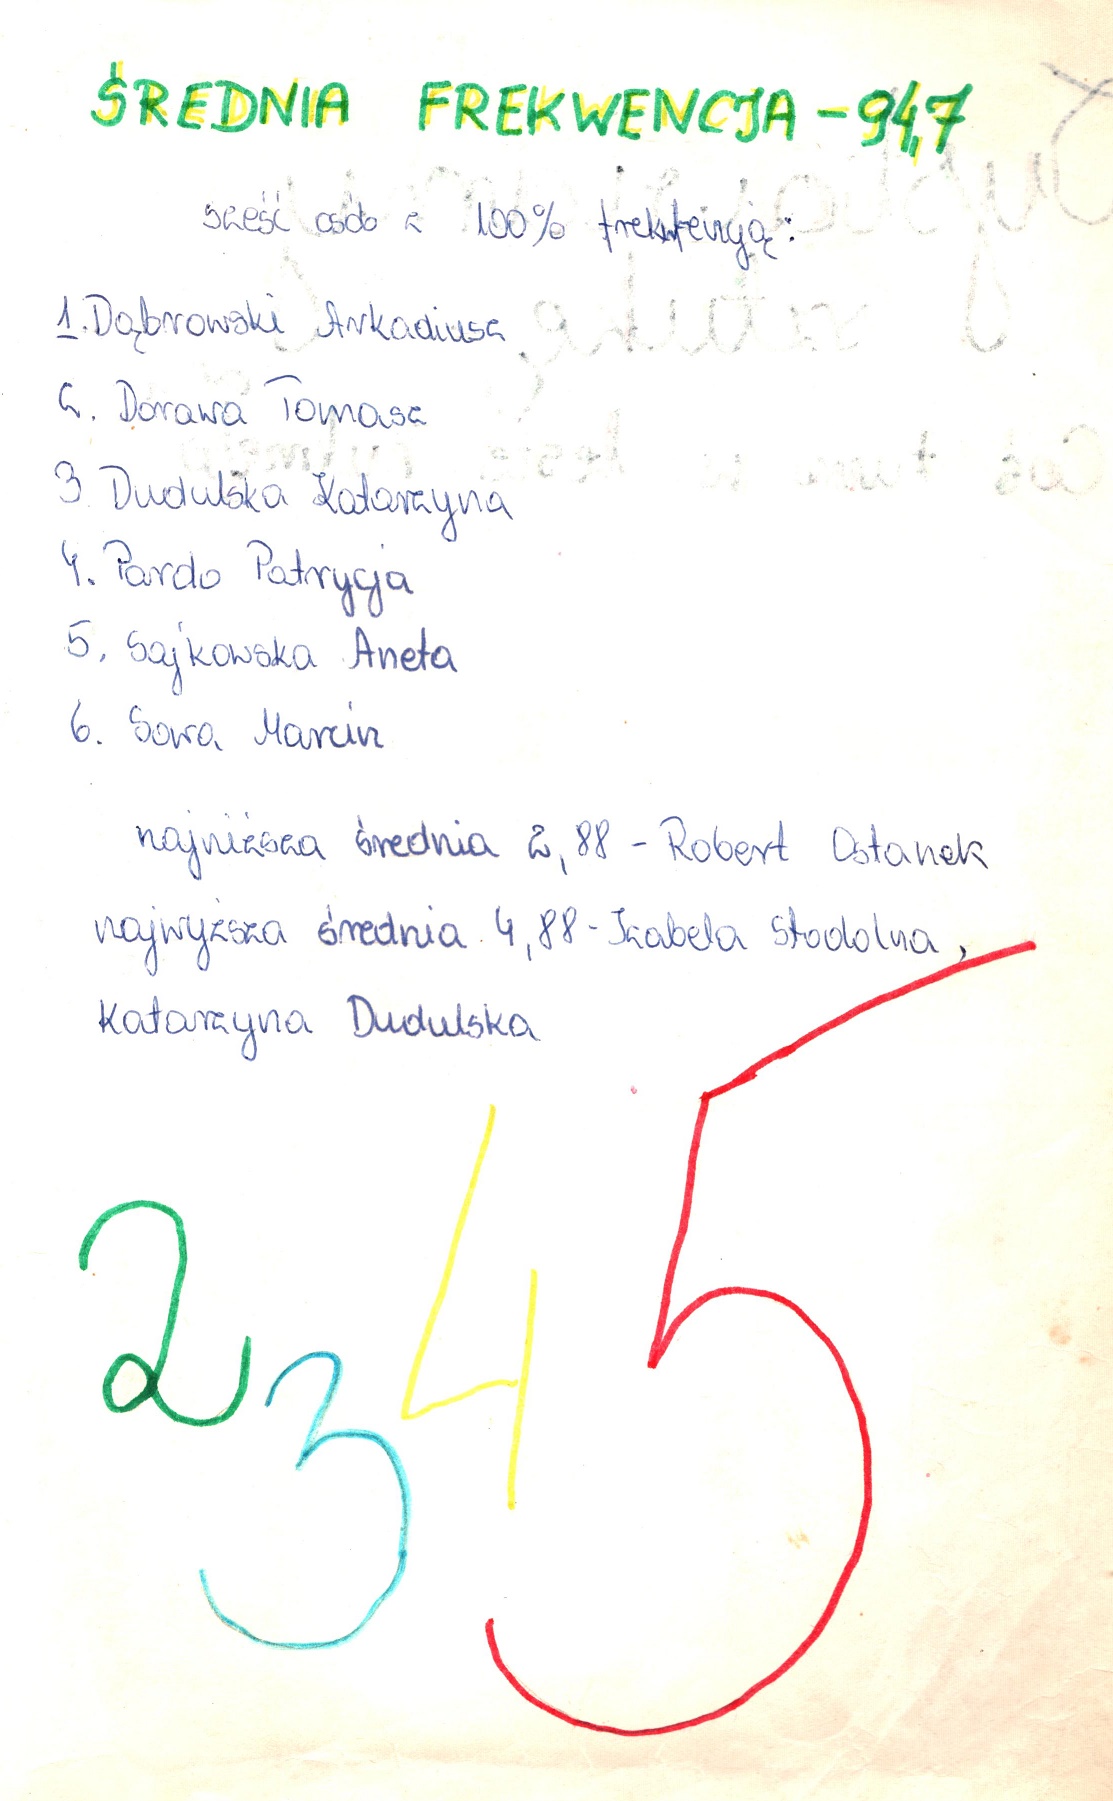 ŚREDNIA FREKWENCJA - 94,7
sześć osób z 100% frekwencją:
1. Dąbrowski Arkadiusz
2. Dorawa Tomasz
3. Dudulska Katarzyna
4. Pardo Patrycja
5. Sajkowska Aneta
6. Sowa Marcin
najniższa średnia 2,88 - Robert Ostanek
najwyższa średnia 4,88 - Izabela Stodolna,
Katarzyna Dudulska
2 3 4 5